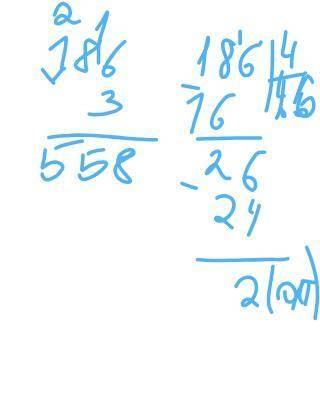 2 1
186
3
558
186 4
- 16 46
26
- 24
2 (ост)